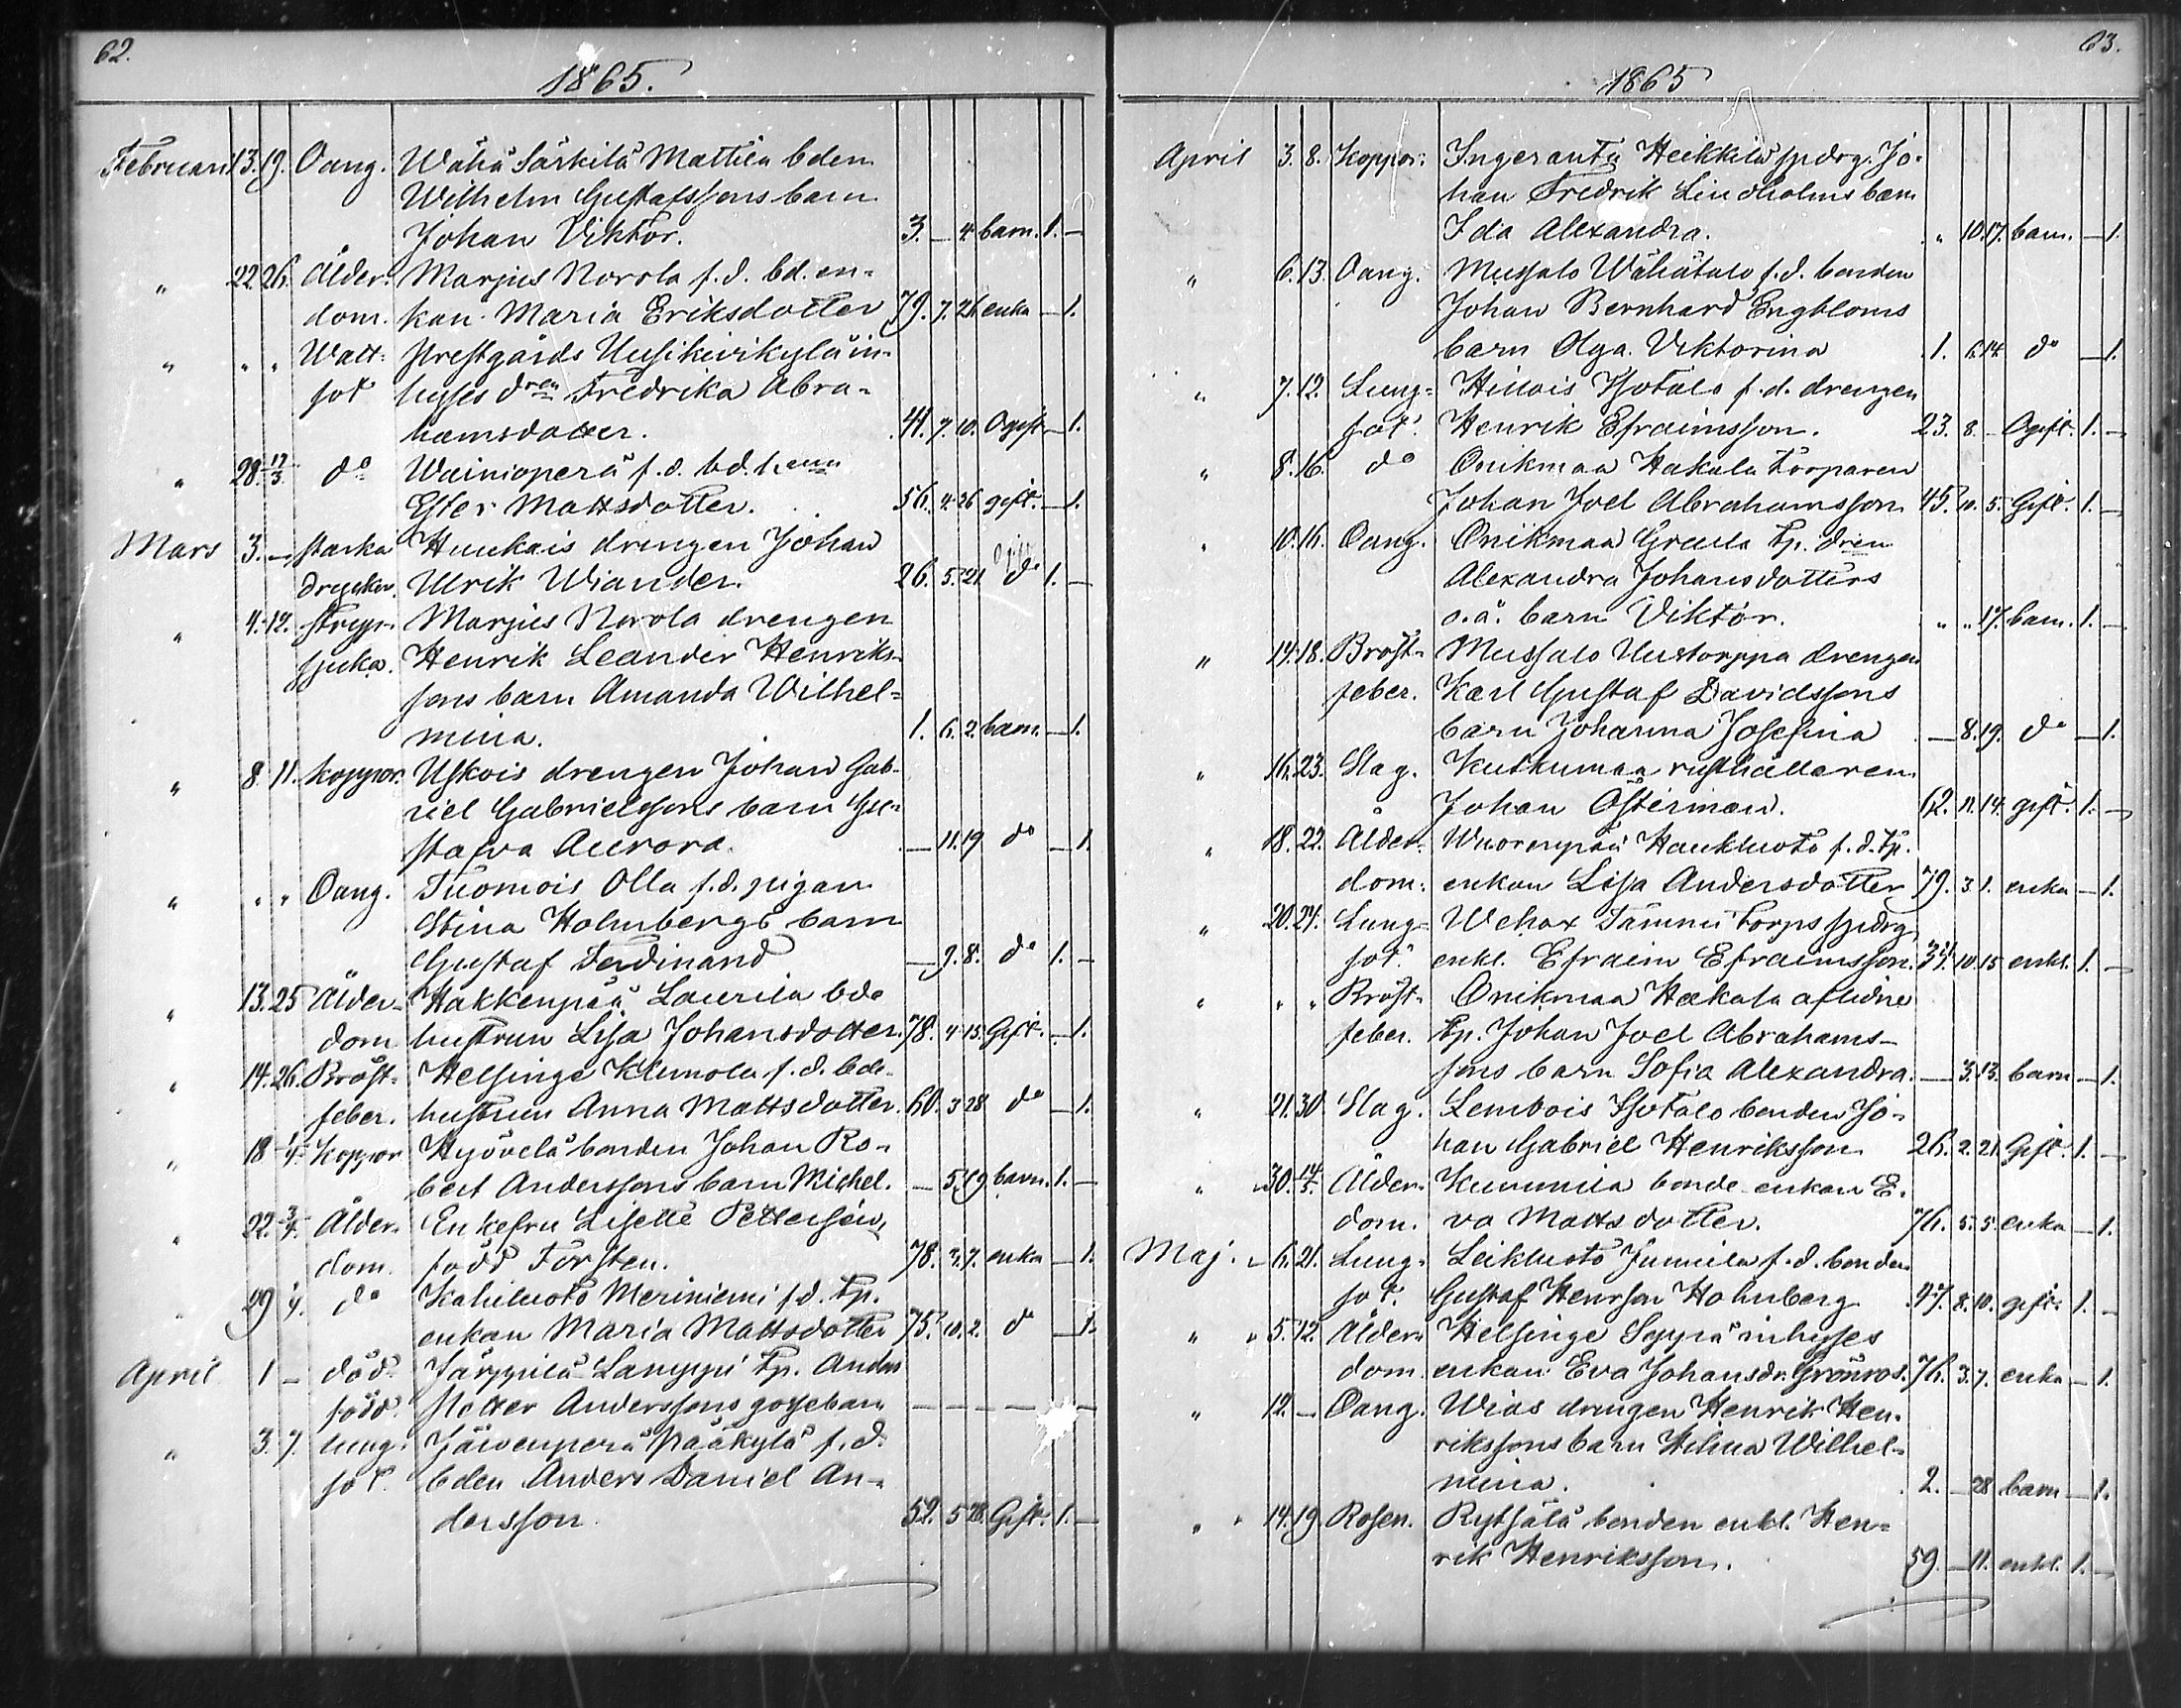 62.
1865.
Februari 13. 19. Oang. Wähä Särkilä Mattila bden
Wilhelm Gustafssons barn
Johan Viktor. 3. — 4 barn. 1. —
" 22. 26. Ålder- Marjus Norola f. d. bd. en-
dom. kan Maria Eriksdotter 79. 7. 26 enka — 1.
" " " Watt- Prestgårds Uusikirikylä in-
sot hyses dren Fredrika Abra-
hamsdotter. 41. 7. 10. Ogift — 1.
" 28. 12/3 do Wainioperä f. d. bd. h
Ester Mattsdotter. 56. 4. 26 gift. — 1.
Mars 3. — starka Huukais drengen Johan
drycker. Ulrik Wiander. 26. 5. 21. do 1. —
" 4. 12. stryp- Marjus Norola drengen
sjuka. Henrik Leander Henriks-
sons barn Amanda Wilhel-
mina. 1. 6. 2. barn. — 1.
" 8. 11. koppor. Uskois drengen Johan Gab-
riel Gabrielssons barn Gu-
stafva Aurora. — 11. 19 do — 1.
" " " Oang. Tuomois Olla f. d. pigan
Stina Holmbergs barn
Gustaf Ferdinand — 9. 8. do 1. —
" 13. 25 Ålder- Hakkenpää Laurila bde
dom hustrun Lisa Johansdotter. 78. 4. 15. Gift. — 1.
" 14. 26. Bröst- Helsinge Klemola f. d. bde
feber. hustrun Anna Mattsdotter. 60. 3 28 do — 1.
" 18 1/4. koppor Hyövelä bonden Johan Ro-
bert Anderssons barn Michel. — 5. 19 barn. 1. —
" 22. 3/4. Ålder- Enkefru Lisette Pettersén,
dom. född Forsten. 78. 2. 7. enka — 1.
" 29 1/4. do Kahiluoto Meriniemi f. d. tp.
enkan Maria Mattsdotter 75. 10. 2. do — 1.
April 1 — död- Järppilä Lamppi tp. Anders
född. Petter Anderssons gossebarn — — — — —
" 3. 7. lung- Jäwenperä Pääkylä f. d.
sot. bden Anders Daniel An-
dersson. 52. 5 28. Gift. 1. —
63.
1865
April 3. 8. Koppor. Ingeranta Heikkilä spdrg. Jo-
han Fredrik Lindholms barn
Ida Alexandra. " 10. 17. barn. — 1.
" 6. 13. Oang. Mussalo Wähätalo f. d. bonden
Johan Bernhard Engbloms
barn Olga Viktorina 1. 6. 14. do — 1.
" 7. 12. Lung- Hiiois Isotalo f. d. drengen
sot. Henrik Efraimsson. 23. 8. — Ogift. 1. —
" 8. 16. do Onikmaa Hakala torparen
Johan Joel Abrahamsson 45. 10. 5. Gift. 1. —
" 10. 16. Oang. Onikmaa Graula tp. dren
Alexandra Johansdotters
o. ä. barn Viktor. " " 17. barn. 1. —
" 14. 18. Bröst- Mussalo Uustorppa drengen
feber. Karl Gustaf Davidssons
barn Johanna Josefina — 8. 19. do — 1.
" 16. 23. Slag. Kuttumaa rusthållaren
Johan Österman. 62. 11. 14. gift. 1. —
" 18. 22. Ålder- Wuorenpää Haukluoto f. d. tp.
dom. enkan Lisa Andersdotter 79. 3. 1. enka — 1.
" 20. 24. Lung- Wehax Tammi torps spdrg
sot. enkl. Efraim Efraimsson. 34. 10. 15 enkl. 1. —
" " " Bröst- Onikmaa Hakala aflidne
feber. tp. Johan Joel Abrahams-
sons barn Sofia Alexandra. — 3. 13. barn — 1.
" 21. 30. Slag. Lembois Isotalo bonden Jo-
han Gabriel Henriksson 26. 2. 21. Gift. 1. —
" 30. 14/5. Ålder- Kunnila bonde enkan E-
dom. va Mattsdotter. 76. 5. 5. enka — 1.
Maj. 6. 21. Lung- Leikluoto Junnila f. d. bonden
sot. Gustaf Henrsson Holmberg 47. 8. 10. gift. 1. —
" " 5. 12. Ålder- Helsinge Seppä inhyses
dom. enkan Eva Johansdr. Grönros. 76. 3. 7. enka — 1.
" 12. — Oang. Wias drengen Henrik Hen-
rikssons barn Helma Wilhel-
mina. 2. — 28 barn — 1.
" " 14. 19. Rosen. Rytsälä bonden enkl. Hen-
rik Henriksson. 59. — 11. enkl. 1. —